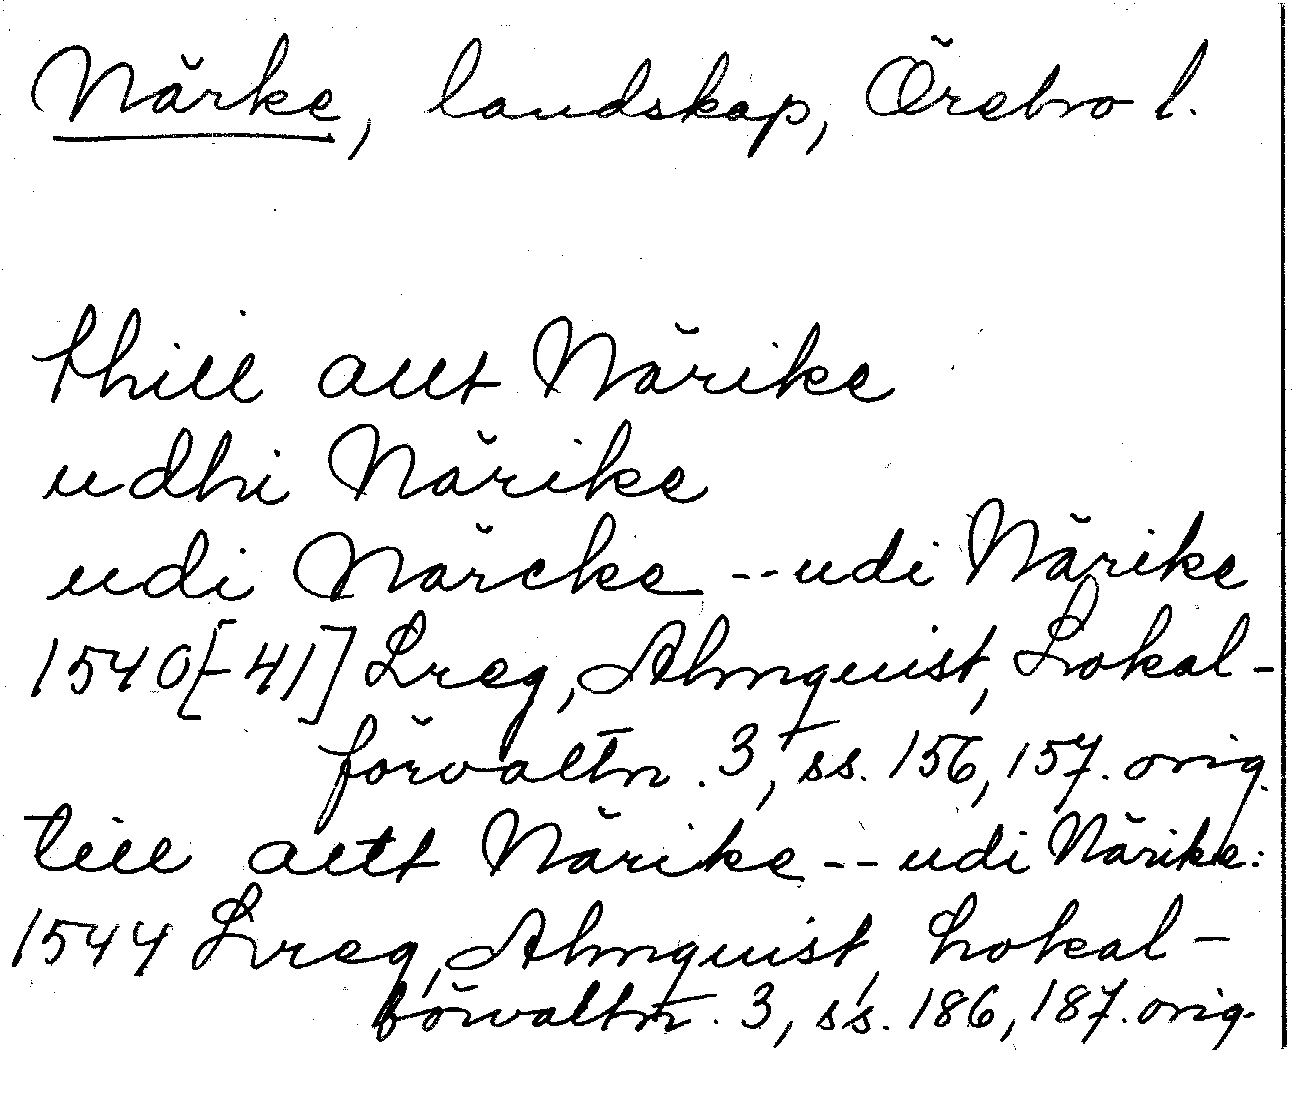 Närke, landskap, Örebro l.
thill allt Närike
udhi Närike
udi Närcke -- udi Närike
1540[-41] Lreg, Almquist, Lokal-
förvaltn. 3, ss. 156, 157. orig.
till allt Närike -- udi Närike:
1544 Lreg, Almquist, Lokal-
förvaltn. 3, ss. 186, 187. orig.